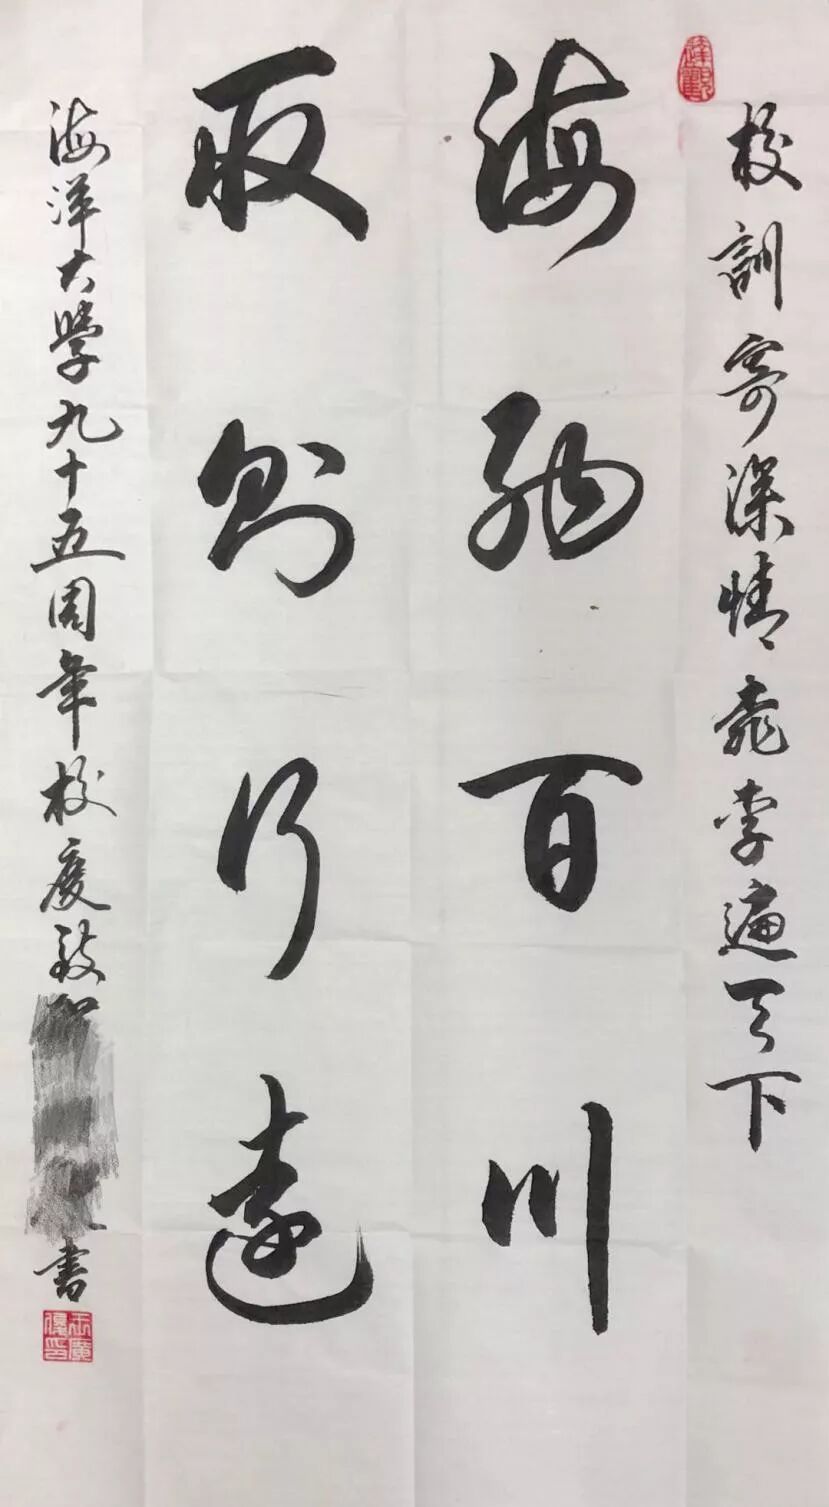 校訓寄深情桃李遍天下
海納百川
取則行遠
海洋大學九十五周年校慶
書